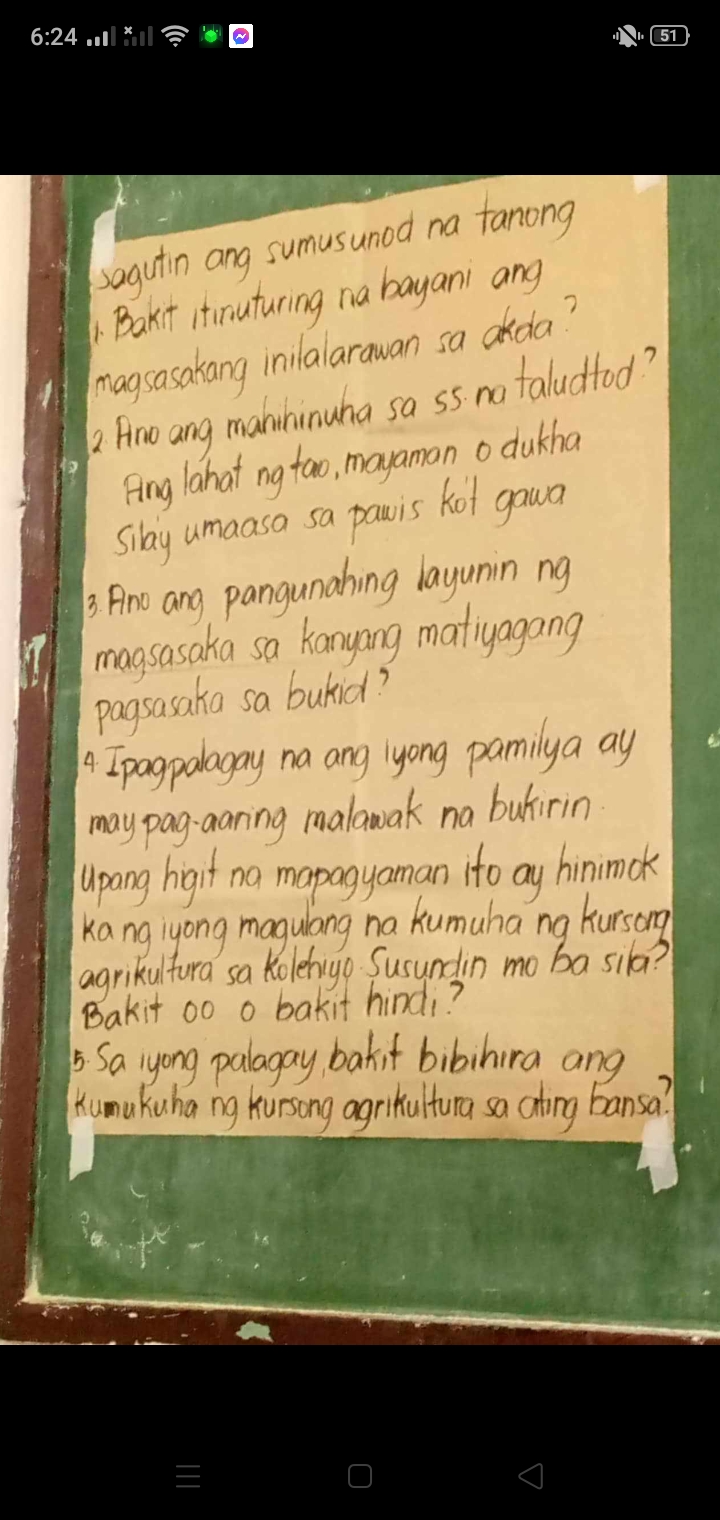 6:24
51
Sagutin ang sumusunod na tanong
1. Bakit itinuturing na bayani ang
magsasakang inilalarawan sa akda?
2 Ano ang mahihinuha sa ss. na taludtod?
Ang lahat ng tao, mayaman o dukha
Sila'y umaasa sa pawis ko't gawa
3. Ano ang pangunahing layunin ng
magsasaka sa kanyang matiyagang
pagsasaka sa bukid?
4 Ipagpalagay na ang iyong pamilya ay
may pag-aaring malawak na bukirin.
Upang higit na mapagyaman ito ay hinimok
ka ng iyong magulang na kumuha ng kursong
agrikultura sa kolehiyo. Susundin mo ba sila?
Bakit oo o bakit hindi?
5. Sa iyong palagay, bakit bibihira ang
kumukuha ng kursong agrikultura sa ating bansa?